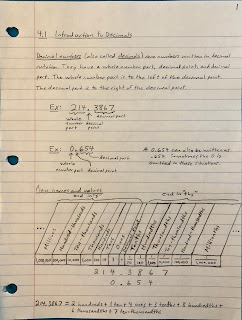 1
4.1 Introduction to Decimals
Decimal numbers (also called decimals) are numbers written in decimal
notation. They have a whole number part, decimal point, and decimal
part. The whole number part is to the left of the decimal point.
The decimal part is to the right of the decimal point.
Ex: 214.3867
whole number part
decimal point
decimal part
Ex: 0.654
whole number part
decimal point
decimal part
* 0.654 can also be written as
.654. Sometimes the 0 is
omitted in these situations.
Place names and values
end in "s"
end in "ths"
Millions
Hundred-thousands
Ten-thousands
Thousands
Hundreds
Tens
Ones
Tenths
Hundredths
Thousandths
Ten-thousandths
Hundred-thousandths
Millionths
214.3867
0.654
214.3867 = 2 hundreds + 1 ten + 4 ones + 3 tenths + 8 hundredths +
6 thousandths + 7 ten-thousandths